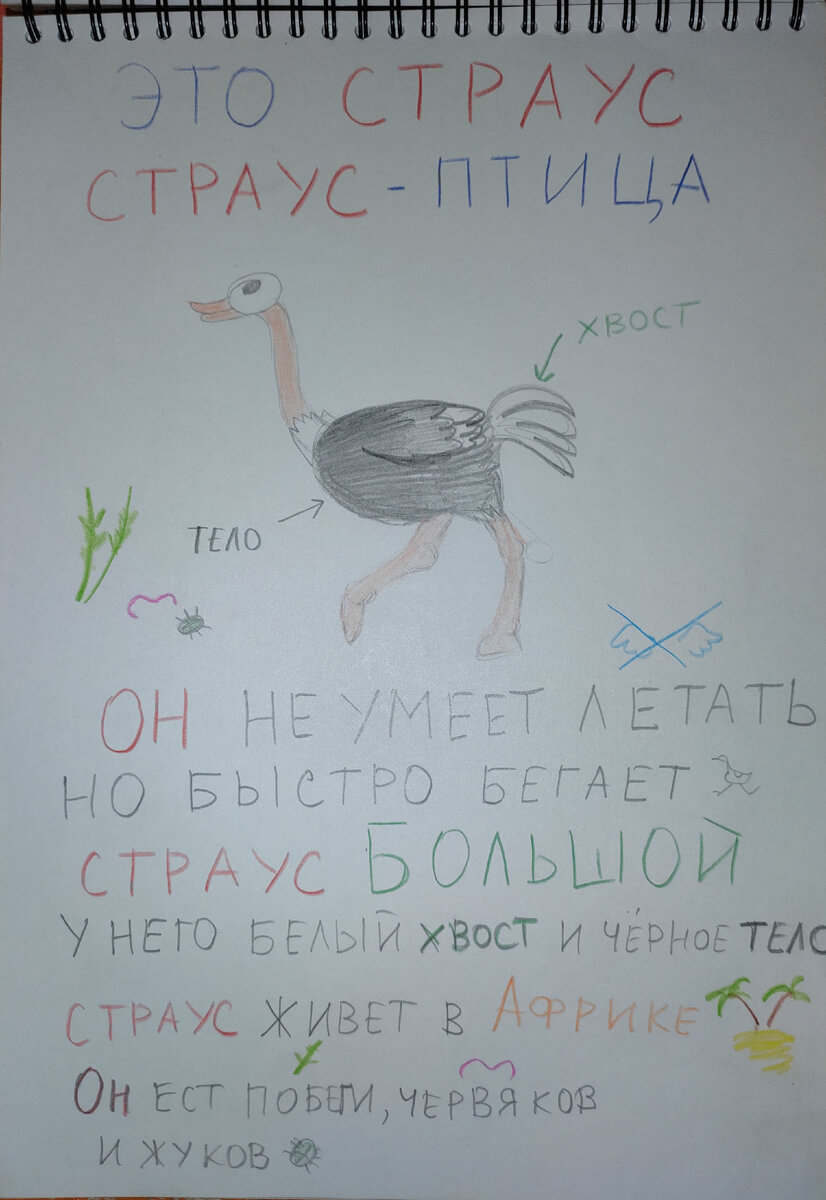 ЭТО СТРАУС
СТРАУС - ПТИЦА
ХВОСТ
ТЕЛО
ОН НЕ УМЕЕТ ЛЕТАТЬ
НО БЫСТРО БЕГАЕТ
СТРАУС БОЛЬШОЙ
У НЕГО БЕЛЫЙ ХВОСТ И ЧЁРНОЕ ТЕЛО
СТРАУС ЖИВЕТ В АФРИКЕ
ОН ЕСТ ПОБЕГИ, ЧЕРВЯКОВ
И ЖУКОВ